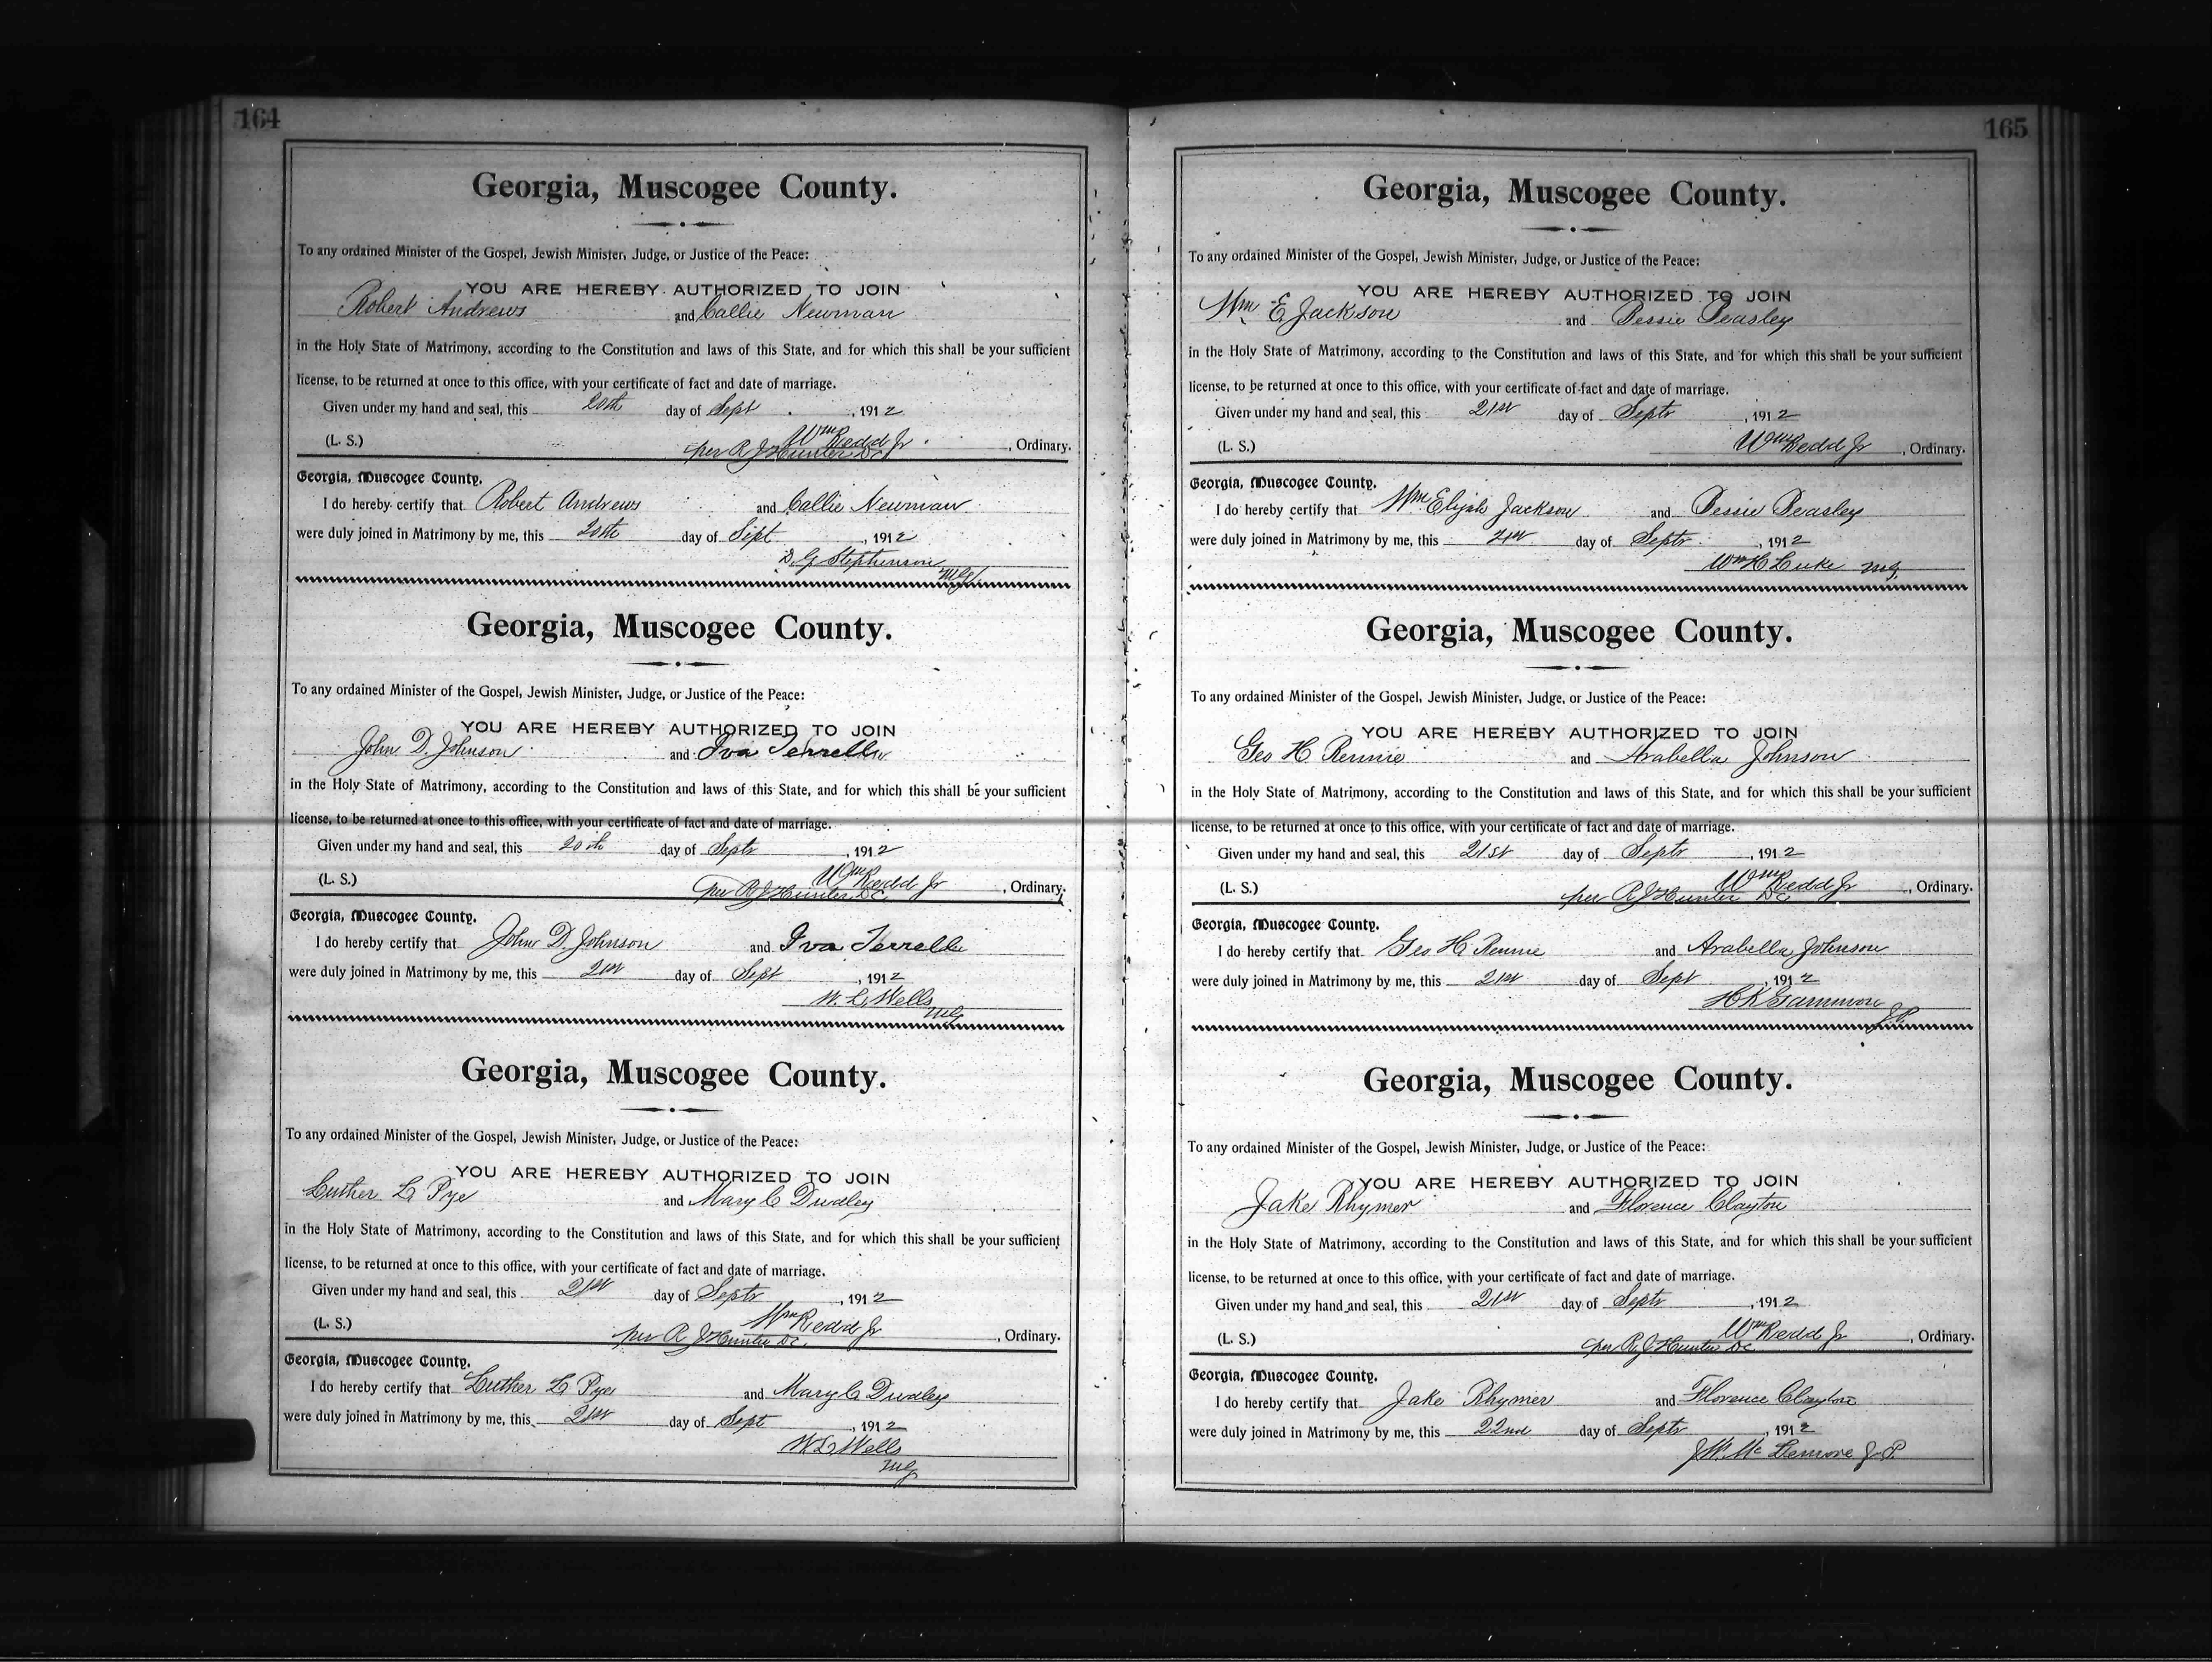 164
Georgia, Muscogee County.
To any ordained Minister of the Gospel, Jewish Minister, Judge, or Justice of the Peace:
YOU ARE HEREBY AUTHORIZED TO JOIN
Robert Andrews and Callie Newman
in the Holy State of Matrimony, according to the Constitution and laws of this State, and for which this shall be your sufficient
license, to be returned at once to this office, with your certificate of fact and date of marriage.
Given under my hand and seal, this 20th day of Sept, 1912
(L. S.) Wm Redd Jr, Ordinary.
per R J Hunter DC
Georgia, Muscogee County.
I do hereby certify that Robert Andrews and Callie Newman
were duly joined in Matrimony by me, this 20th day of Sept, 1912
D. G. Stephenson
MG
Georgia, Muscogee County.
To any ordained Minister of the Gospel, Jewish Minister, Judge, or Justice of the Peace:
YOU ARE HEREBY AUTHORIZED TO JOIN
John D. Johnson and Iva
in the Holy State of Matrimony, according to the Constitution and laws of this State, and for which this shall be your sufficient
license, to be returned at once to this office, with your certificate of fact and date of marriage.
Given under my hand and seal, this 20th day of Septr, 1912
(L. S.) Wm Redd Jr, Ordinary.
per R J Hunter DC
Georgia, Muscogee County.
I do hereby certify that John D. Johnson and Iva
were duly joined in Matrimony by me, this 21st day of Sept, 1912
W. L. Wells
MG
Georgia, Muscogee County.
To any ordained Minister of the Gospel, Jewish Minister, Judge, or Justice of the Peace:
YOU ARE HEREBY AUTHORIZED TO JOIN
Luther L Pye and Mary C Dudley
in the Holy State of Matrimony, according to the Constitution and laws of this State, and for which this shall be your sufficient
license, to be returned at once to this office, with your certificate of fact and date of marriage.
Given under my hand and seal, this 21st day of Septr, 1912
(L. S.) Wm Redd Jr, Ordinary.
per R J Hunter DC.
Georgia, Muscogee County.
I do hereby certify that Luther L Pye and Mary C Dudley
were duly joined in Matrimony by me, this 21st day of Sept, 1912
W L Wells
MG
165
Georgia, Muscogee County.
To any ordained Minister of the Gospel, Jewish Minister, Judge, or Justice of the Peace:
YOU ARE HEREBY AUTHORIZED TO JOIN
Wm E. Jackson and Bessie Peasley
in the Holy State of Matrimony, according to the Constitution and laws of this State, and for which this shall be your sufficient
license, to be returned at once to this office, with your certificate of fact and date of marriage.
Given under my hand and seal, this 21st day of Septr, 1912
(L. S.) Wm Redd Jr, Ordinary.
Georgia, Muscogee County.
I do hereby certify that Wm Elijah Jackson and Bessie Peasley
were duly joined in Matrimony by me, this 21st day of Septr, 1912
Wm H Luke MG
Georgia, Muscogee County.
To any ordained Minister of the Gospel, Jewish Minister, Judge, or Justice of the Peace:
YOU ARE HEREBY AUTHORIZED TO JOIN
Geo H Rennie and Arabella Johnson
in the Holy State of Matrimony, according to the Constitution and laws of this State, and for which this shall be your sufficient
license, to be returned at once to this office, with your certificate of fact and date of marriage.
Given under my hand and seal, this 21st day of Septr, 1912
(L. S.) Wm Redd Jr, Ordinary.
per R J Hunter DC
Georgia, Muscogee County.
I do hereby certify that Geo H. Rennie and Arabella Johnson
were duly joined in Matrimony by me, this 21st day of Sept, 1912
H K Gammon
J.P.
Georgia, Muscogee County.
To any ordained Minister of the Gospel, Jewish Minister, Judge, or Justice of the Peace:
YOU ARE HEREBY AUTHORIZED TO JOIN
Jake Rhymer and Florence Clayton
in the Holy State of Matrimony, according to the Constitution and laws of this State, and for which this shall be your sufficient
license, to be returned at once to this office, with your certificate of fact and date of marriage.
Given under my hand and seal, this 21st day of Septr, 1912
(L. S.) Wm Redd Jr, Ordinary.
per R. J Hunter DC
Georgia, Muscogee County.
I do hereby certify that Jake Rhymer and Florence Clayton
were duly joined in Matrimony by me, this 22nd day of Septr, 1912
J. W. McLemore J.P.